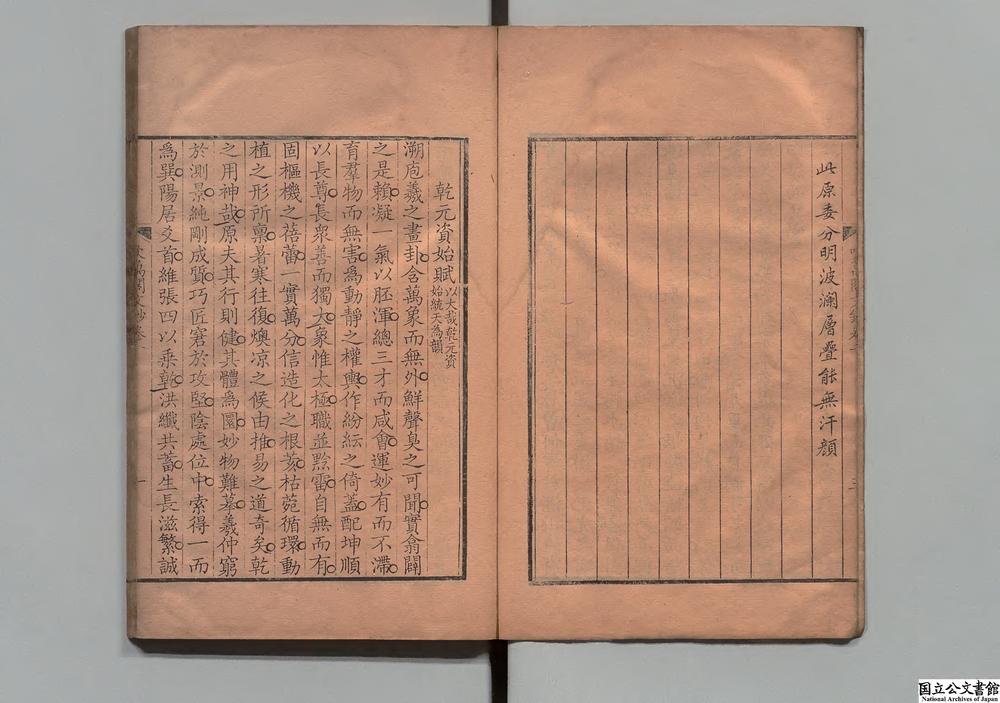 此原委分明波瀾層疊能無汗顏
乾元資始賦
以大哉乾元資
始統天為韻
溯庖羲之畫卦含萬象而無外鮮聲臭之可聞實翕闢
之是賴凝一氣以胚渾總三才而咸會運妙有而不滯
育羣物而無害為動靜之權輿作紛紜之倚蓋配坤順
以長尊長衆善而獨大象惟太極職並黔雷自無而有
固樞機之蓓蕾一實萬分信造化之根荄枯菀循環動
植之形所禀暑寒往復燠凉之候由推易之道奇矣乾
之用神哉原夫其行則健其體為圜妙物難摹羲仲窮
於測景純剛成質巧匠窘於攻堅陰處位中索得一而
為巽陽居爻首維張四以乘乾洪纖共蓄生長滋繁誠
一
國立公文書館
National Archives of Japan